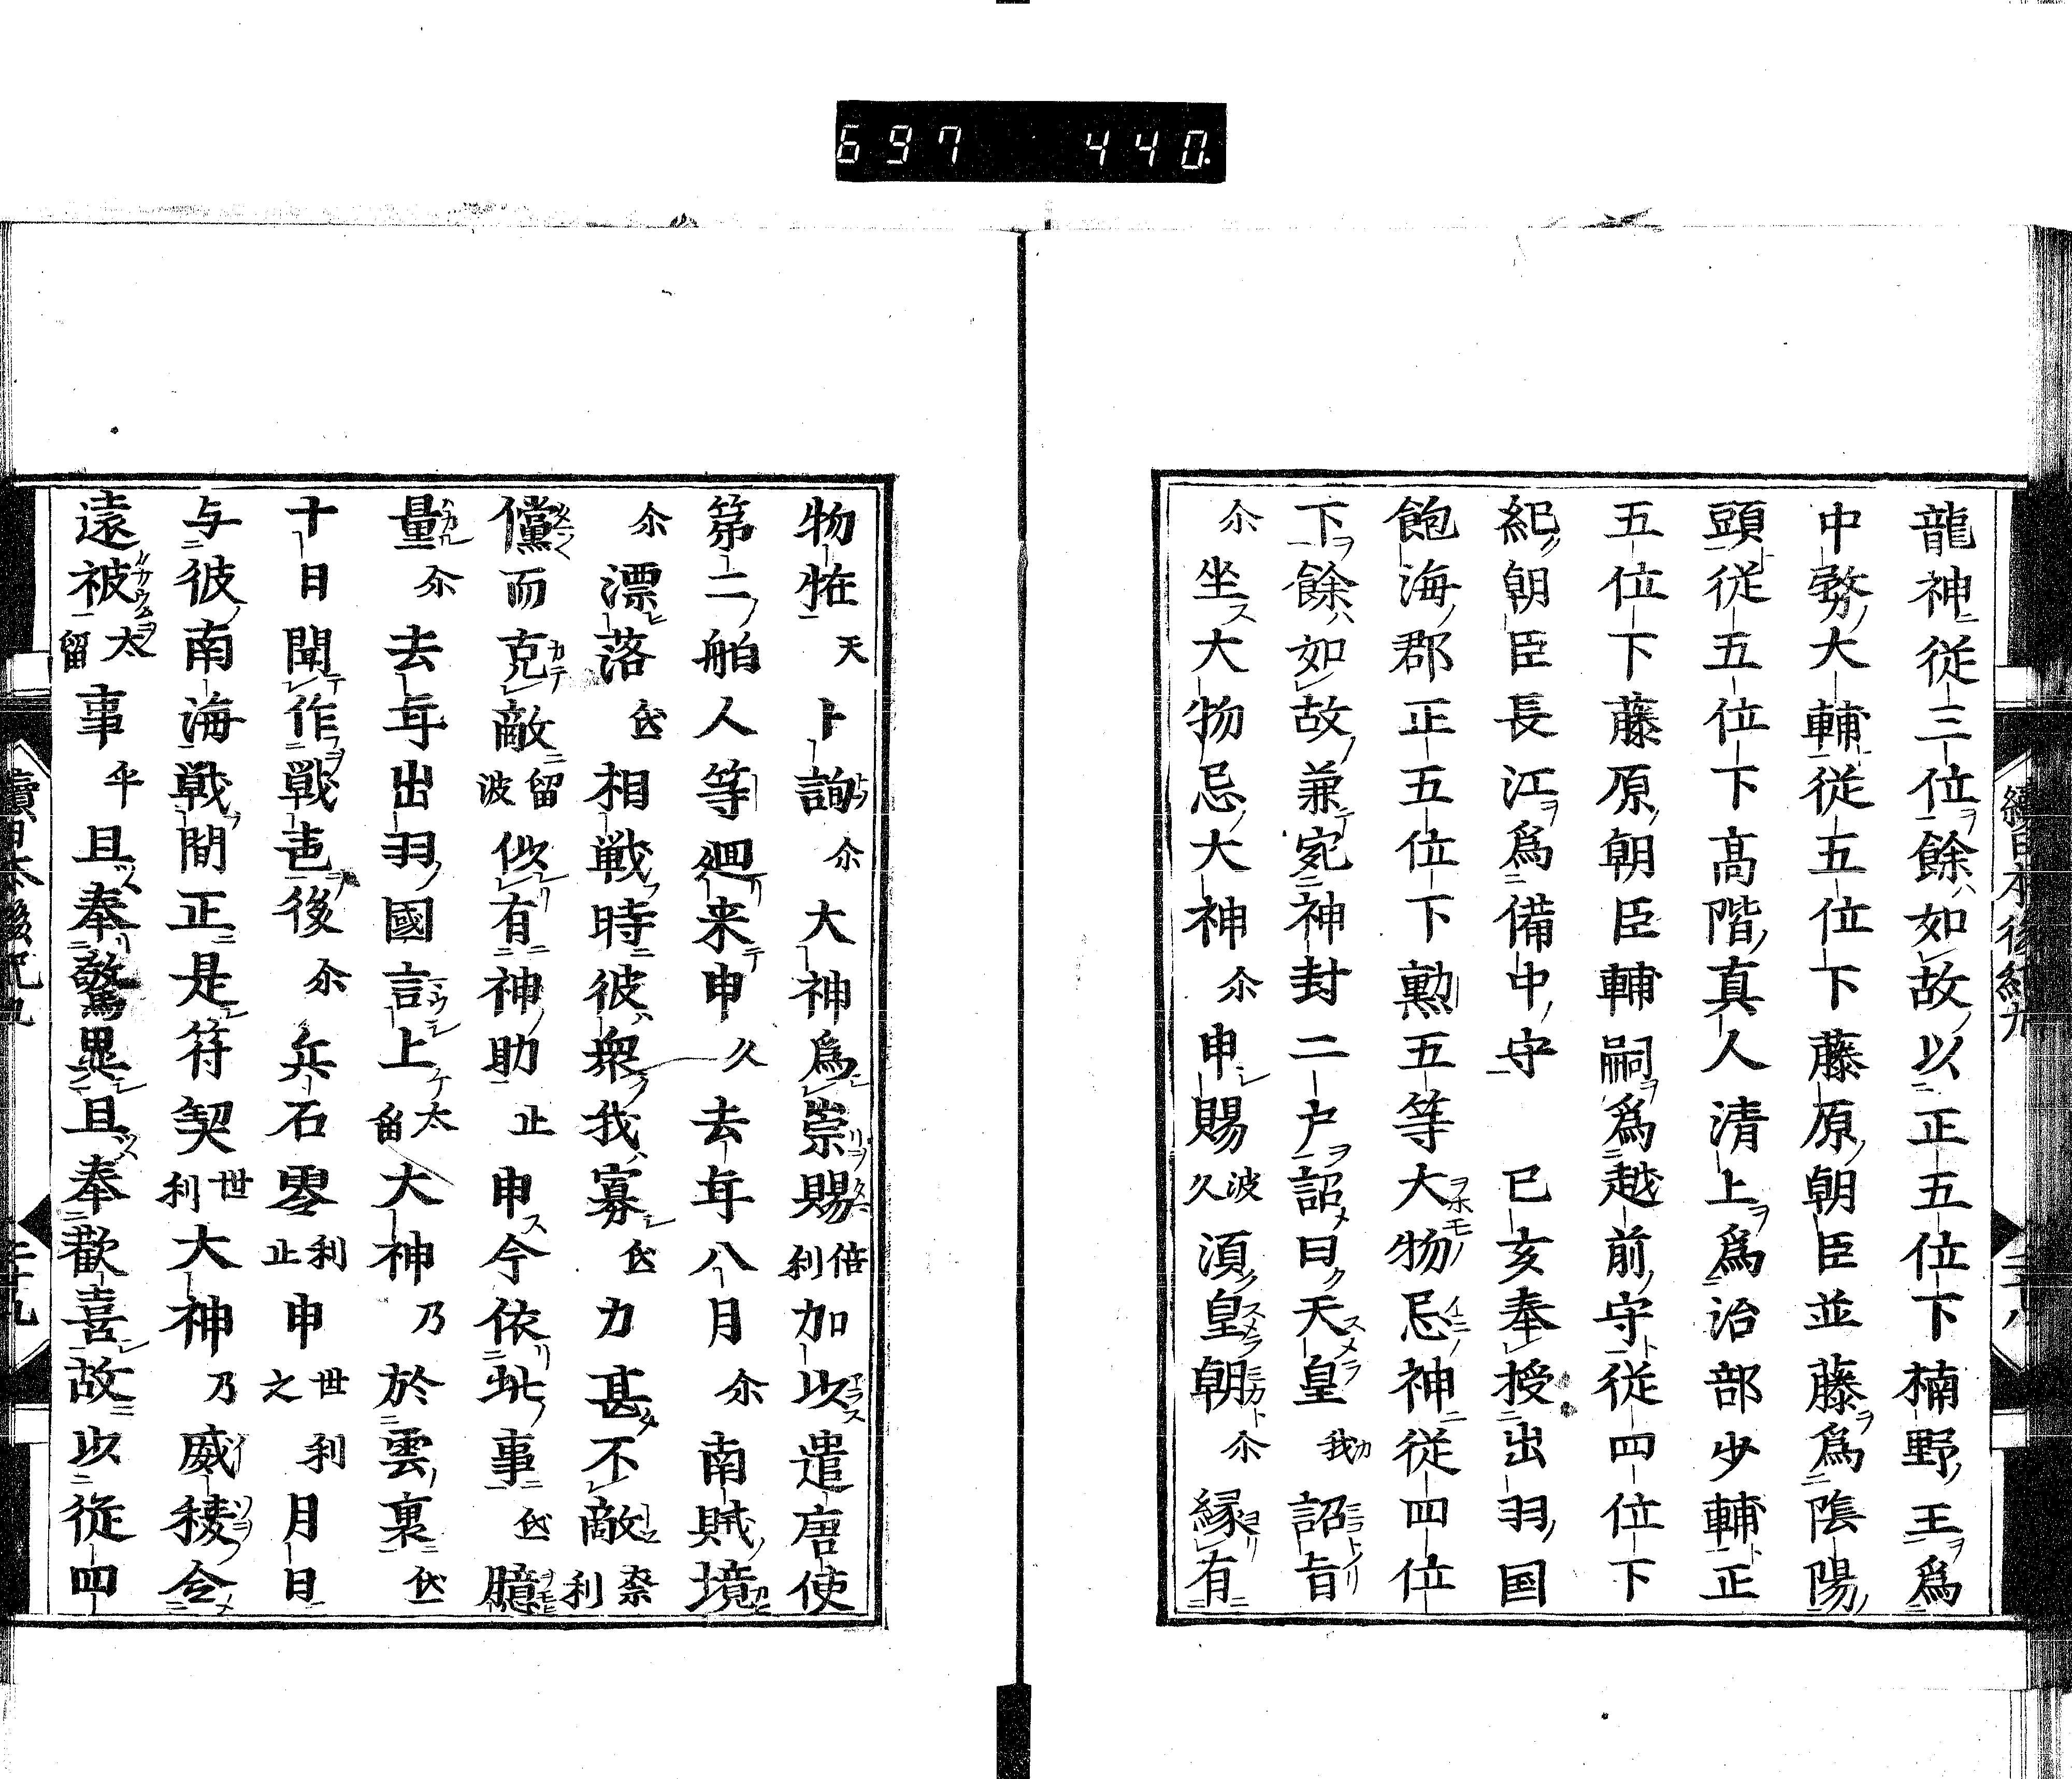 697 440.
龍神従三位餘如故以正五位下楠野王爲
中務大輔従五位下藤原朝臣並藤爲陰陽
頭従五位下髙階真人清上爲治部少輔正
五位下藤原朝臣輔嗣爲越前守従四位下
紀朝臣長江爲備中守 已亥奉授出羽国
飽海郡正五位下勲五等大物忌神従四位
下餘如故兼宛神封二戸詔曰天皇我詔旨
尒坐大物忌大神尒申賜波久湏皇朝尒縁有
物恠天卜詢尒大神爲崇賜倍利加以遣唐使
第二舶人等廻来申久去年八月尒南賊境
尒漂落氐相戦時彼衆我寡氐力甚不敵奈利
儻而克敵留波似有神助止申今依此事氐臆
量尒去年出羽國言上太留大神乃於雲裏氐
十日聞作戦聲後尒兵石零利止申世之利月日
与彼南海戦間正是符契世利大神乃威稜令
遠被太留事乎且奉驚異且奉歡喜故以従四
續日本後紀九 二十八
續日本後紀九 二十九